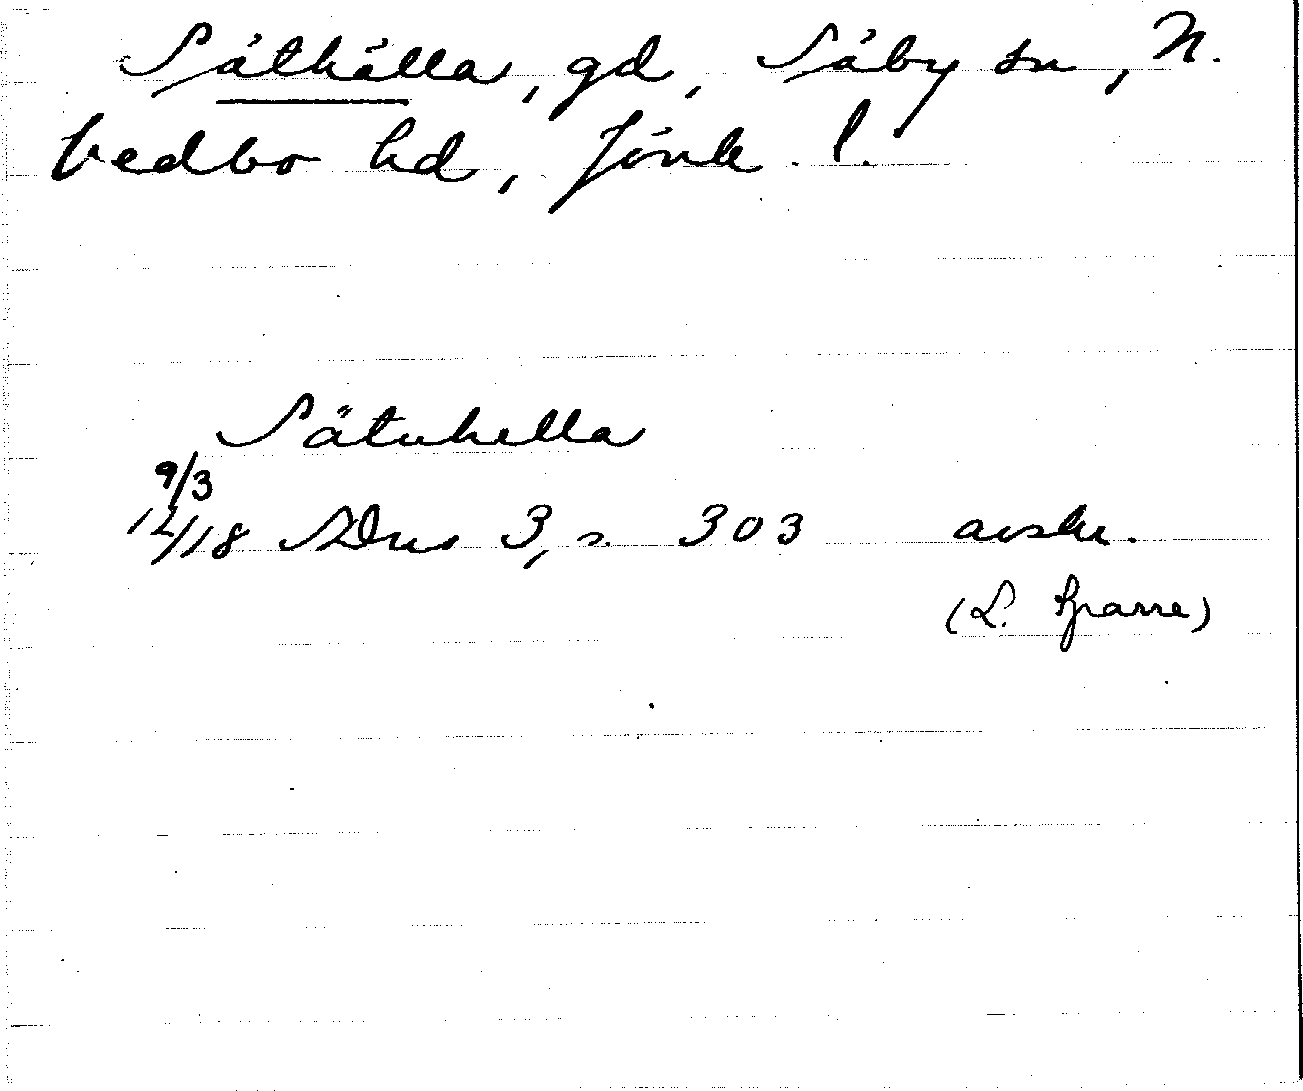 Såthälla, gd, Säby sn, N.
Vedbo hd, Jönk. l.
Sätuhella
9/3
12/18 SDns 3, s. 303 avskr.
(L. Sparre)